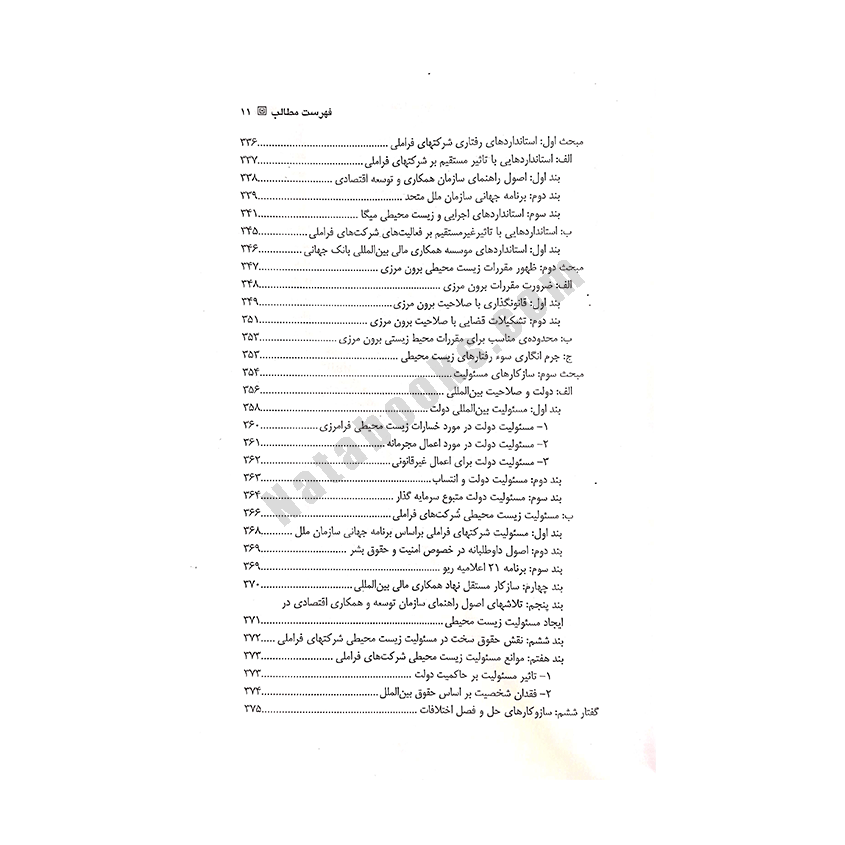 فهرست مطالب ۱۱
مبحث اول: استانداردهای رفتاری شرکتهای فراملی ۳۳۶
الف: استانداردهایی با تاثیر مستقیم بر شرکتهای فراملی ۳۳۷
بند اول: اصول راهنمای سازمان همکاری و توسعه اقتصادی ۳۳۸
بند دوم: برنامه جهانی سازمان ملل متحد ۳۳۹
بند سوم: استانداردهای اجرایی و زیست محیطی میگا ۳۴۱
ب: استانداردهایی با تاثیرغیرمستقیم بر فعالیت‌های شرکت‌های فراملی ۳۴۵
بند اول: استانداردهای موسسه همکاری مالی بین‌المللی بانک جهانی ۳۴۶
مبحث دوم: ظهور مقررات زیست محیطی برون مرزی ۳۴۷
الف: ضرورت مقررات برون مرزی ۳۴۸
بند اول: قانونگذاری با صلاحیت برون مرزی ۳۴۹
بند دوم: تشکیلات قضایی با صلاحیت برون مرزی ۳۵۱
ب: محدوده‌ی مناسب برای مقررات محیط زیستی برون مرزی ۳۵۳
ج: جرم انگاری سوء رفتارهای زیست محیطی ۳۵۳
مبحث سوم: سازکارهای مسئولیت ۳۵۴
الف: دولت و صلاحیت بین‌المللی ۳۵۶
بند اول: مسئولیت بین‌المللی دولت ۳۵۸
۱- مسئولیت دولت در مورد خسارات زیست محیطی فرامرزی ۳۶۰
۲- مسئولیت دولت در مورد اعمال مجرمانه ۳۶۱
۳- مسئولیت دولت برای اعمال غیرقانونی ۳۶۲
بند دوم: مسئولیت دولت و انتساب ۳۶۳
بند سوم: مسئولیت دولت متبوع سرمایه گذار ۳۶۴
ب: مسئولیت زیست محیطی شرکت‌های فراملی ۳۶۶
بند اول: مسئولیت شرکتهای فراملی براساس برنامه جهانی سازمان ملل ۳۶۸
بند دوم: اصول داوطلبانه در خصوص امنیت و حقوق بشر ۳۶۹
بند سوم: برنامه ۲۱ اعلامیه ریو ۳۶۹
بند چهارم: سازکار مستقل نهاد همکاری مالی بین‌المللی ۳۷۰
بند پنجم: تلاشهای اصول راهنمای سازمان توسعه و همکاری اقتصادی در
ایجاد مسئولیت زیست محیطی ۳۷۱
بند ششم: نقش حقوق سخت در مسئولیت زیست محیطی شرکتهای فراملی ۳۷۲
بند هفتم: موانع مسئولیت زیست محیطی شرکت‌های فراملی ۳۷۳
۱- تاثیر مسئولیت بر حاکمیت دولت ۳۷۳
۲- فقدان شخصیت بر اساس حقوق بین‌الملل ۳۷۴
گفتار ششم: سازوکارهای حل و فصل اختلافات ۳۷۵
Natabooks.com